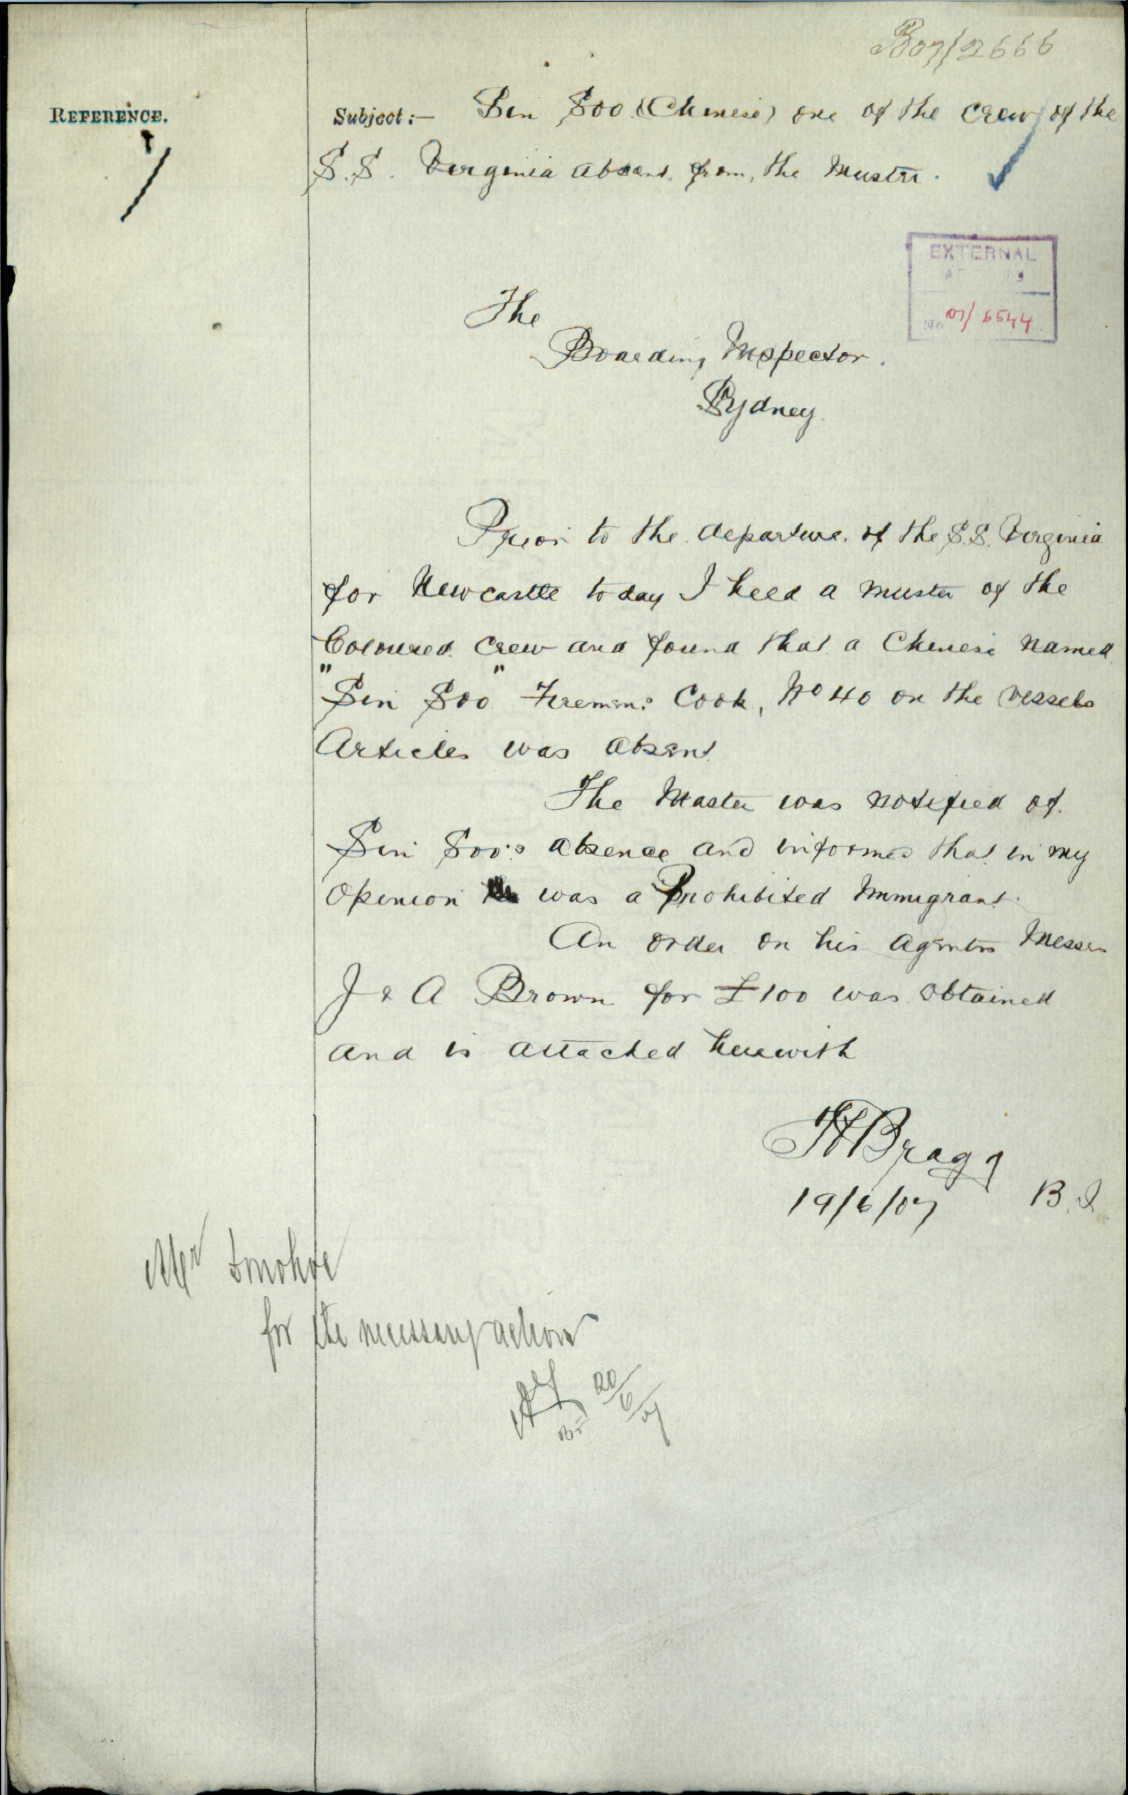 B07/2666
REFERENCE.
Subject:— Sin Soo (Chinese) one of the crew of the
S.S. Virginia absent from the Muster.
EXTERNAL
No 07/6544
The
Boarding Inspector.
Sydney
Prior to the departure of the S.S. Virginia
for Newcastle today I held a muster of the
Coloured Crew and found that a Chinese named
"Sin Soo" Firemens Cook, No 40 on the vessels
Articles was absent
The Master was notified of
Sin Soo's absence and informed that in my
opinion he was a Prohibited Immigrant.
An order on his agents Messrs
J & A Brown for £100 was obtained
and is attached herewith
Bragg
19/6/07 B.I.
Mr Donohoe
for the necessary action
20/6/07